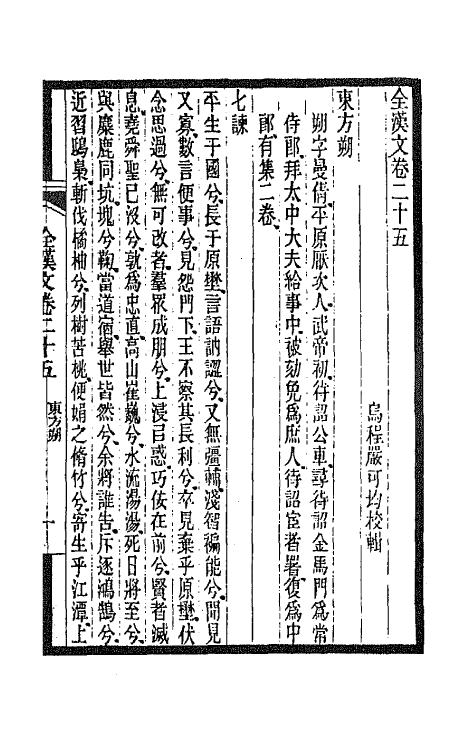 全漢文卷二十五
烏程嚴可均校輯
東方朔
朔字曼倩平原厭次人武帝初待詔公車尋待詔金馬門爲常
侍郎拜太中大夫給事中被劾免爲庶人待詔宦者署復爲中
郎有集二卷
七諫
平生于國兮長于原壄言語訥譅兮又無彊輔淺智褊能兮聞見
又寡數言便事兮見怨門下王不察其長利兮卒見棄乎原壄伏
念思過兮無可改者羣眾成朋兮上浸㠯惑巧佞在前兮賢者滅
息堯舜聖已沒兮孰爲忠直高山崔巍兮水流湯湯死日將至兮
與麋鹿同坑塊兮鞠當道宿舉世皆然兮余將誰告斥逐鴻鵠兮
近習鴟梟斬伐橘柚兮列樹苦桃便娟之脩竹兮寄生乎江潭上
全漢文卷二十五
東方朔
一